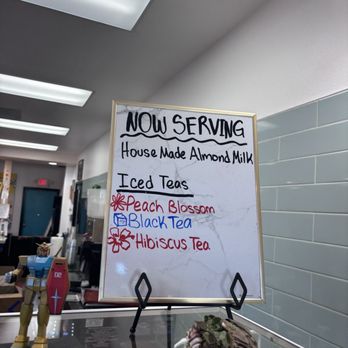 NOW SERVING
House Made Almond Milk
Iced Teas
Peach Blossom
Black Tea
Hibiscus Tea